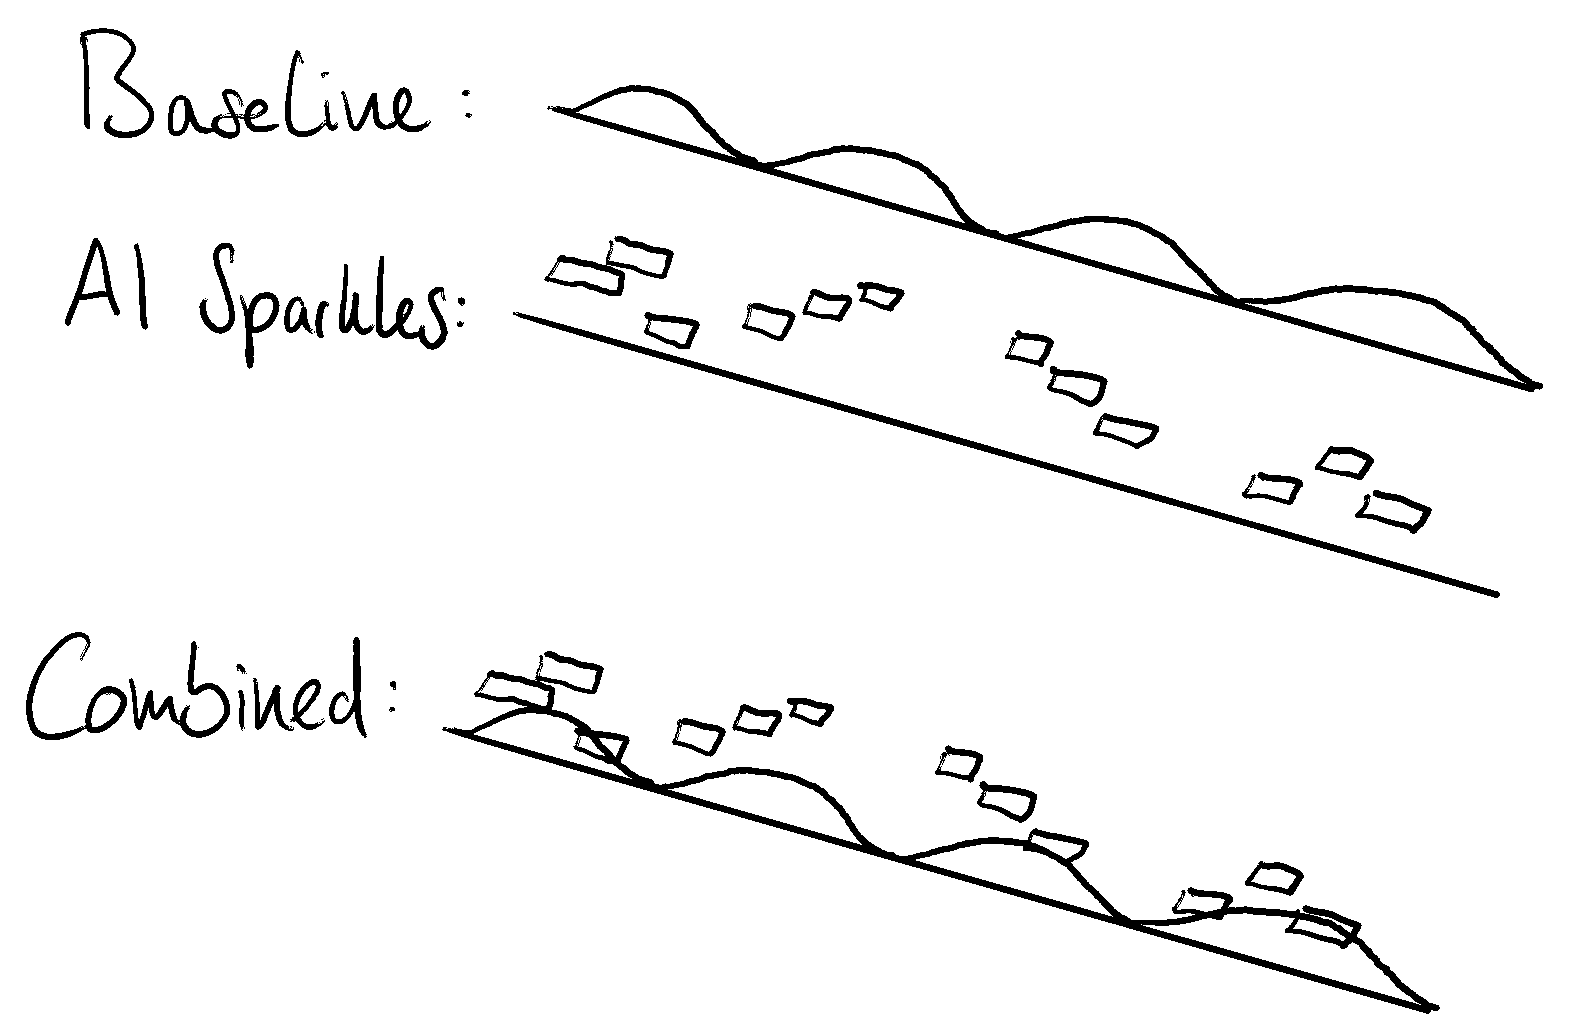 Baseline:
AI Sparkles:
Combined: